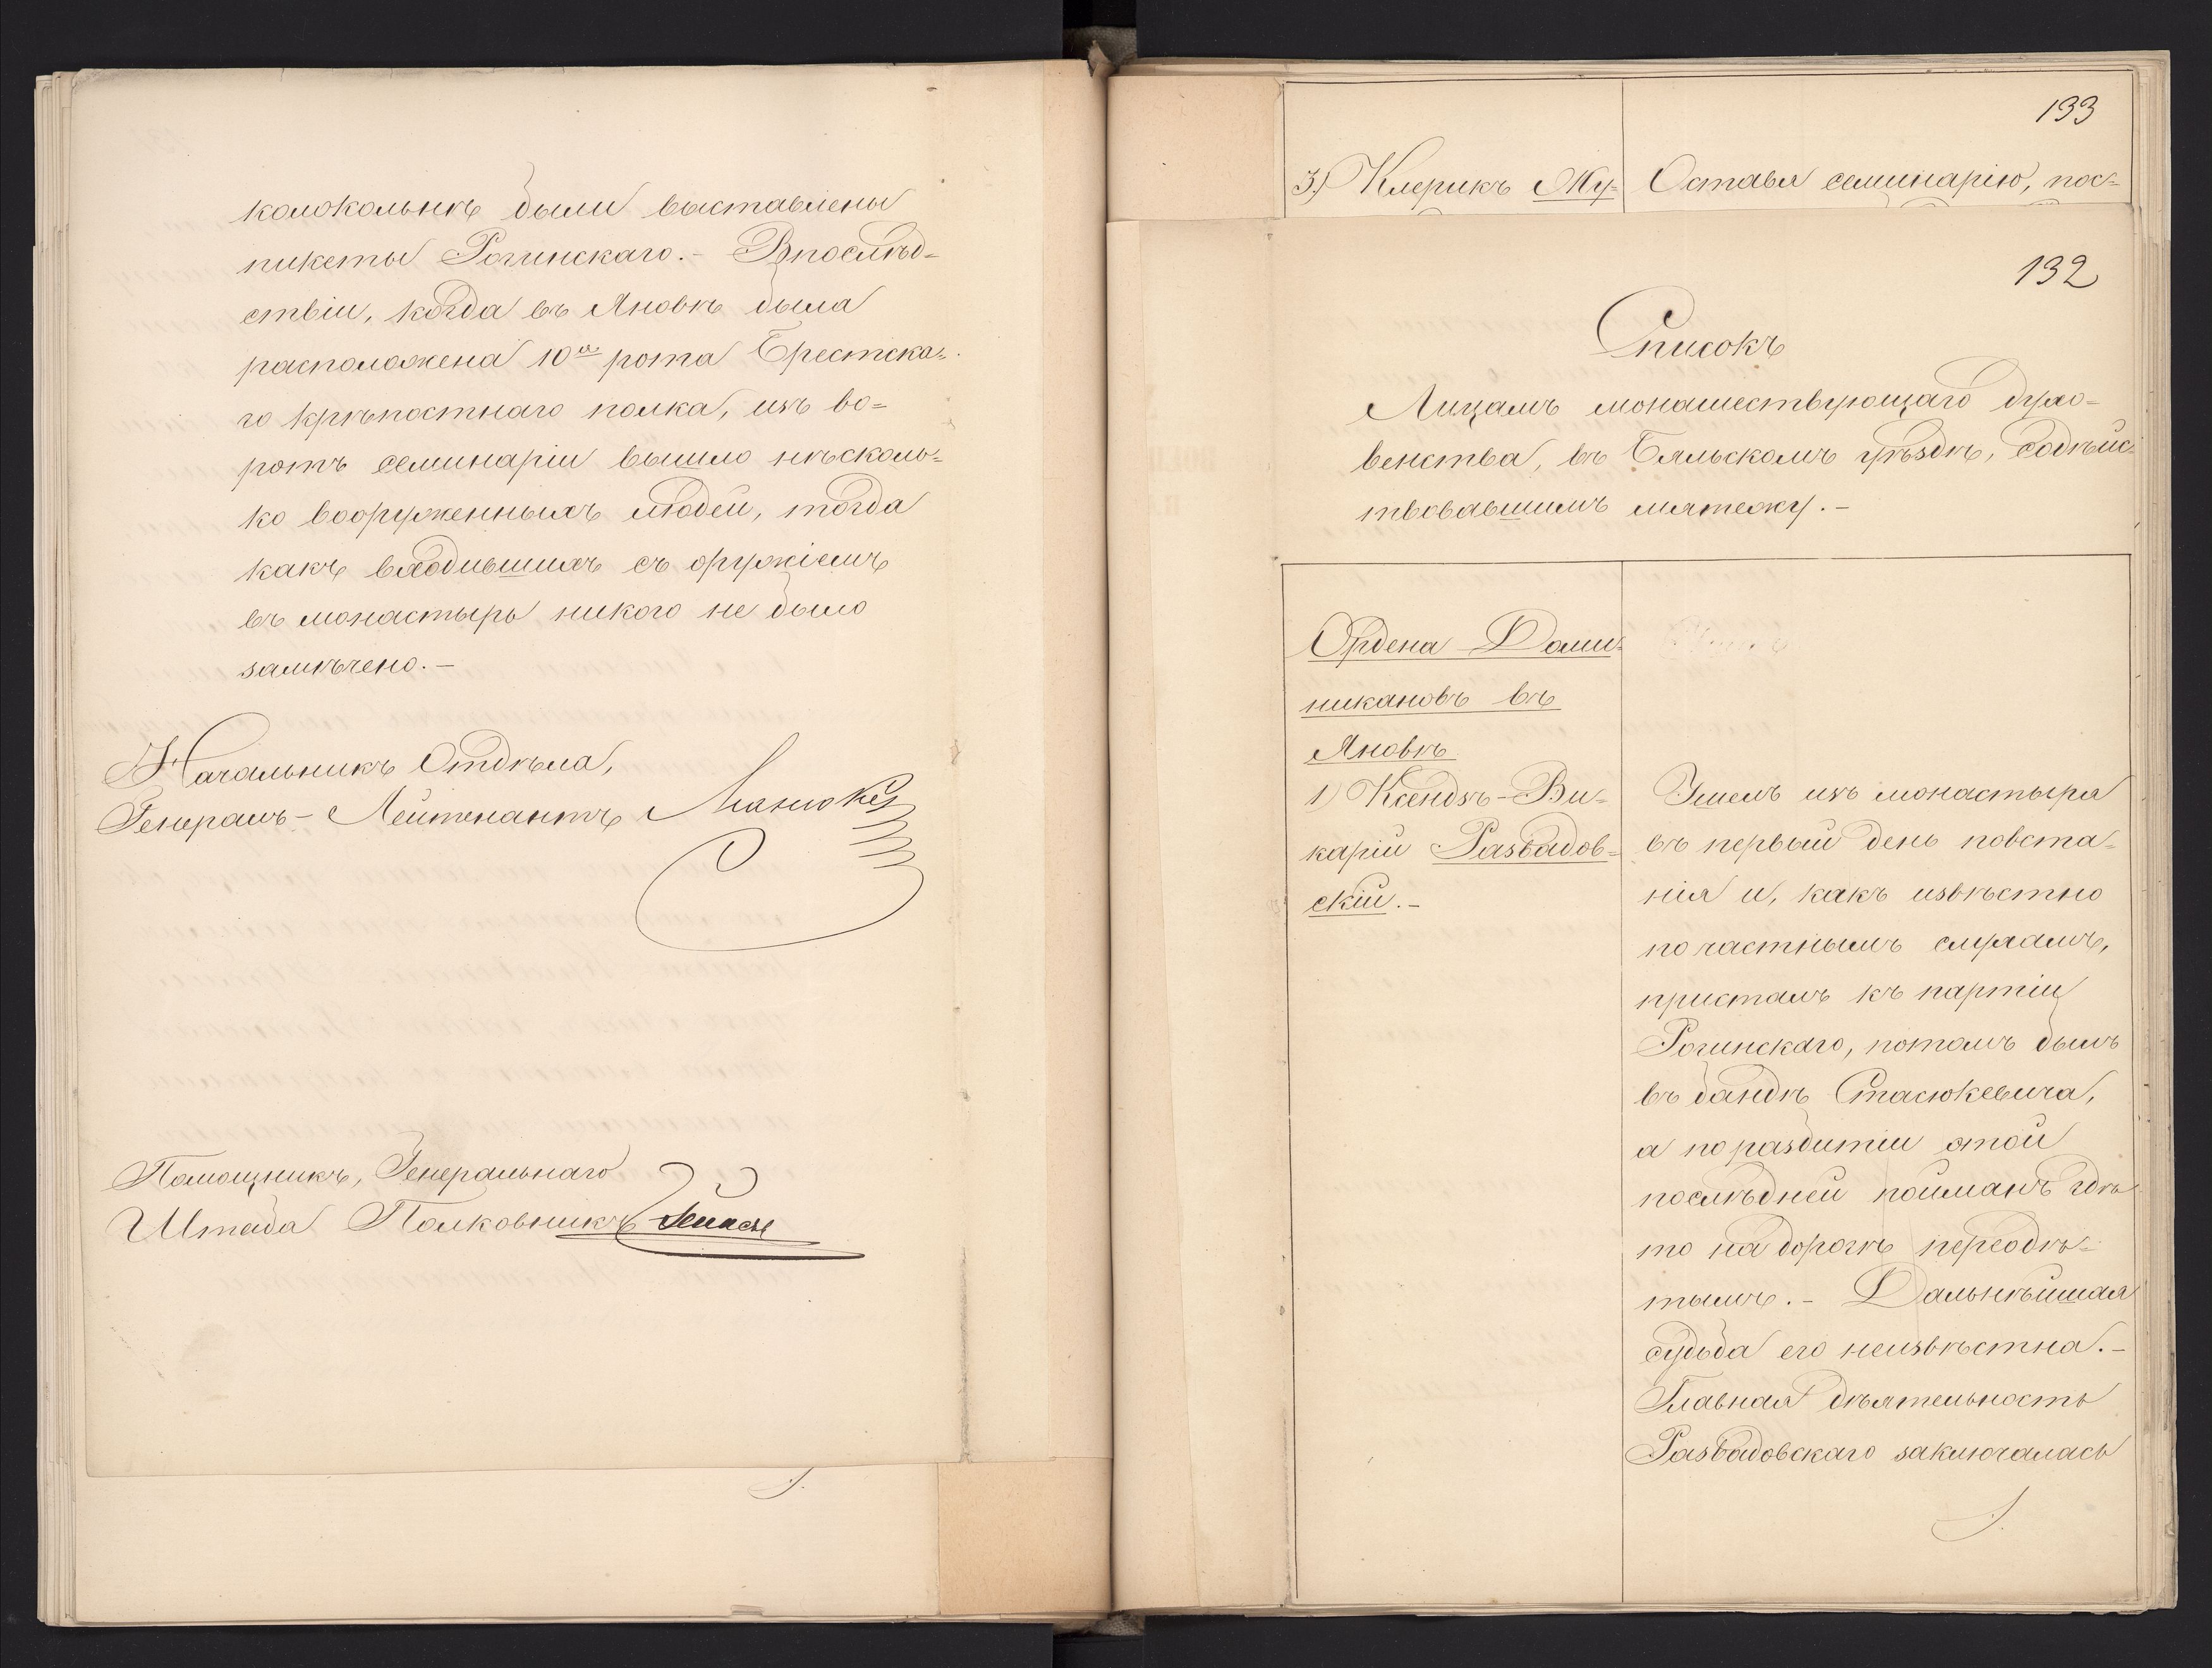 колокольнѣ были выставлены
пикеты Рогинскаго.- Впослѣд=
ствіи, когда въ Яновѣ была
расположена 10ая рота Брестска=
го крѣпостнаго полка, изъ во=
ротъ семинаріи вышло нѣсколь=
ко вооруженныхъ людей, тогда
какъ входившихъ съ оружіемъ
въ монастырь никого не было
замѣчено.-
Начальникъ Отдѣла,
Генералъ-Лейтенантъ
Помощникъ, Генеральнаго
Штаба Полковникъ
133
3) Клерикъ Му= Оставя семинарію, пос=
132
Списокъ
Лицамъ монашествующаго духо=
венства, въ Бяльскомъ уѣздѣ, содѣйс=
твовавшимъ мятежу.-
Ордена Доми=
никановъ въ
Яновѣ
1) Ксендзъ-Ви=
карій Развадов=
скій.-
Ушелъ изъ монастыря
въ первый день повста=
нія и, какъ извѣстно
по частнымъ слухамъ,
присталъ къ партіи
Рогинскаго, потомъ былъ
въ бандѣ Стасюкевича,
а по разбитіи этой
послѣдней пойманъ гдѣ
то на дорогѣ переодѣ=
тымъ.- Дальнѣйшая
судьба его неизвѣстна.-
Главная дѣятельность
Развадовскаго заключалась